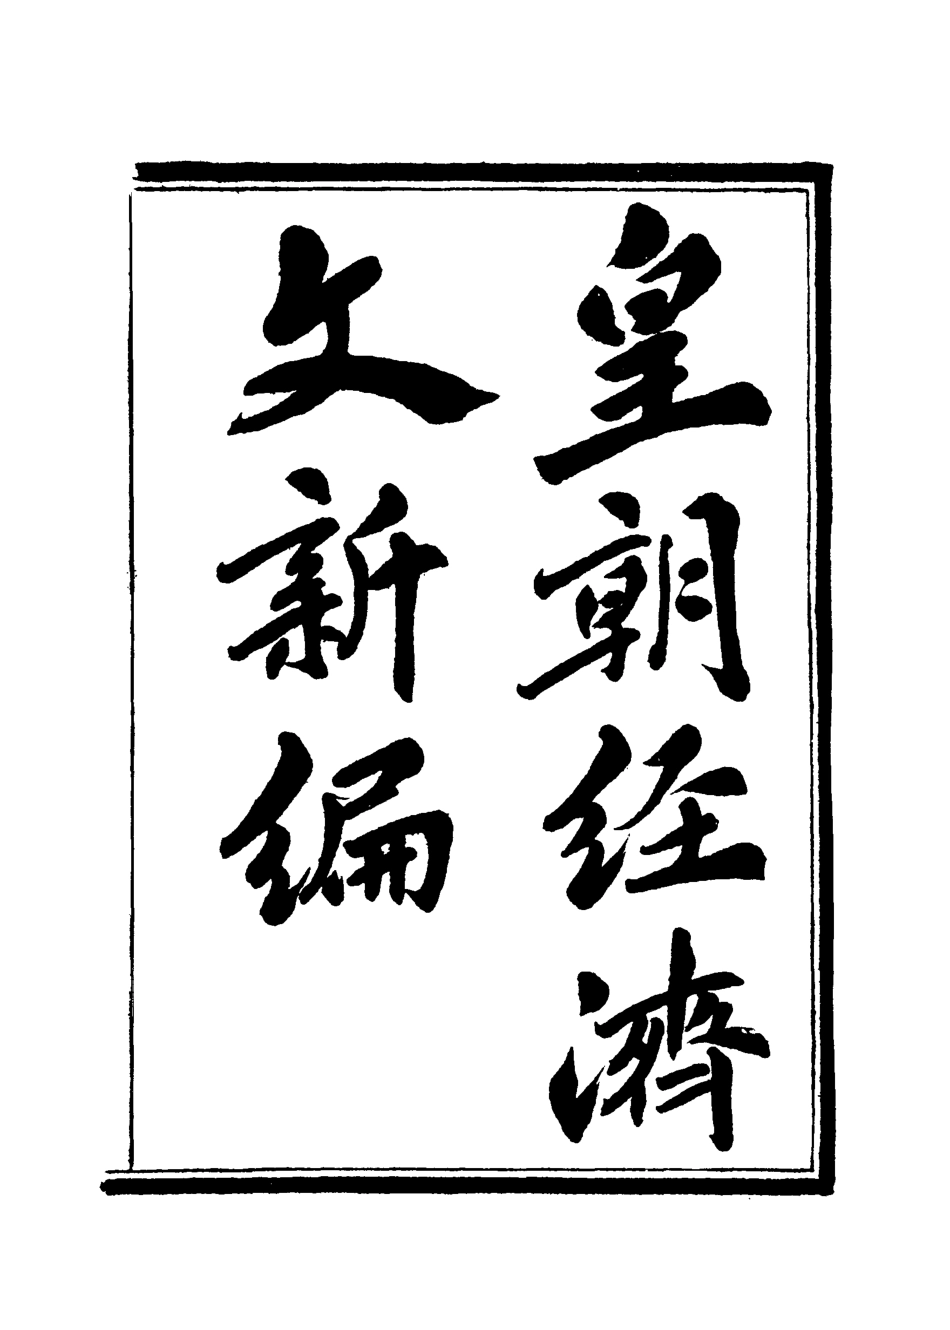 皇朝経濟
文新編